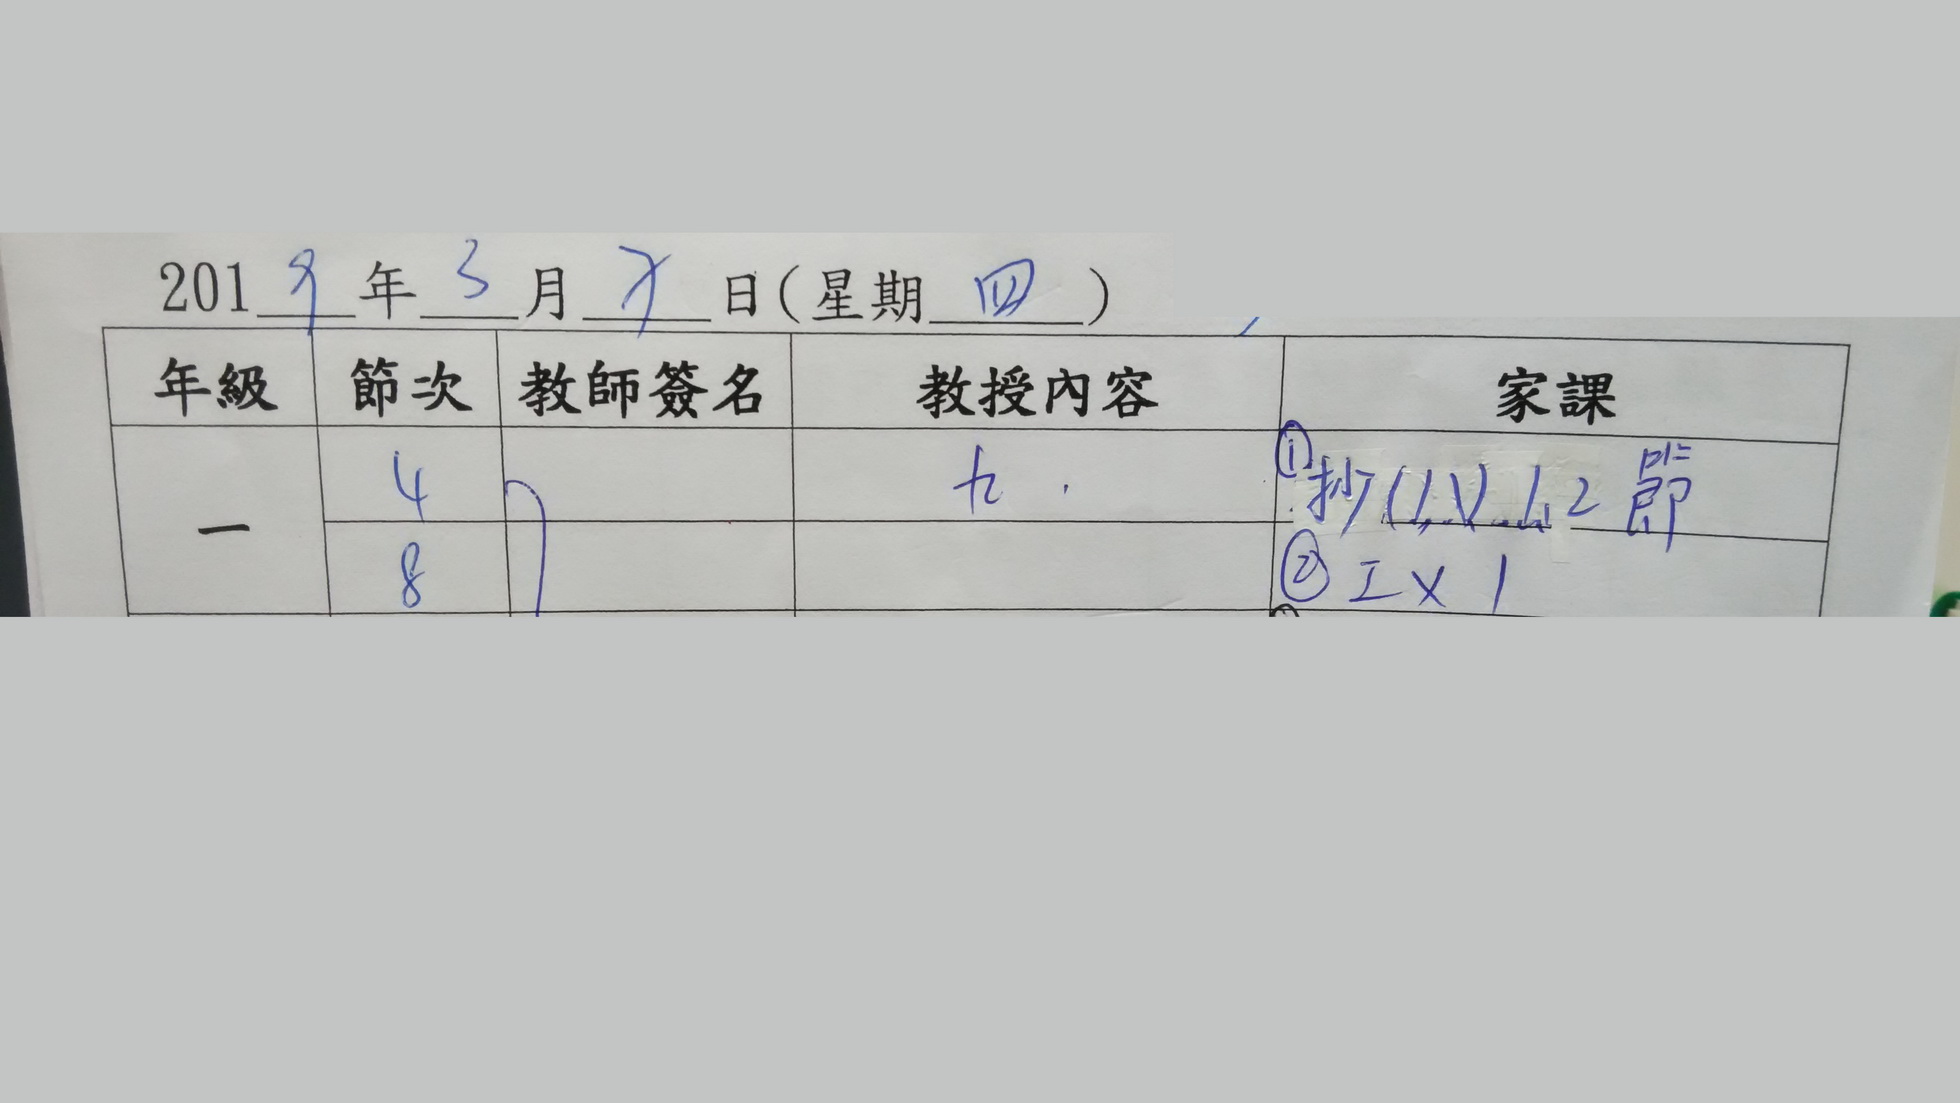 2019年3月7日(星期四)
年級 節次 教師簽名 教授內容 家課
一 4 ① 抄(1,1) 1,2 節
8 ② 工 x 1